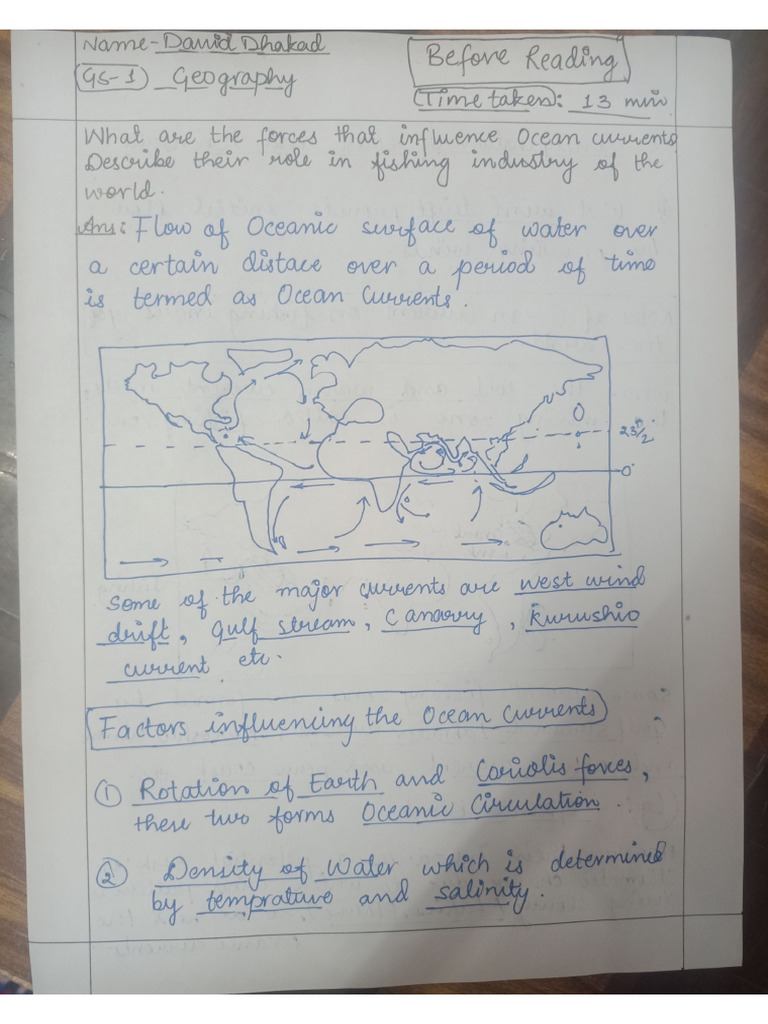 Name- David Dhakad
GS-1 Geography
Before Reading
Time taken: 13 min
What are the forces that influence Ocean currents
Describe their role in fishing industry of the
world.
Ans: Flow of Oceanic surface of water over
a certain distace over a period of time
is termed as Ocean Currents.
23½°
0°
Some of the major currents are west wind
drift, gulf stream, Canarry, Kurushio
current etc.
Factors influencing the Ocean Currents
① Rotation of Earth and Coriolis forces,
these two forms Oceanic Circulation.
② Density of Water which is determined
by temprature and salinity.